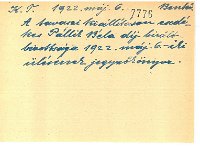 K. T. 1922. máj. 6.
7776
A tavaszi kiállításon esedé-
kes Pállik Béla díj bíráló
bizottsága 1922. máj. 6.-iki
ülésének jegyzőkönyve.